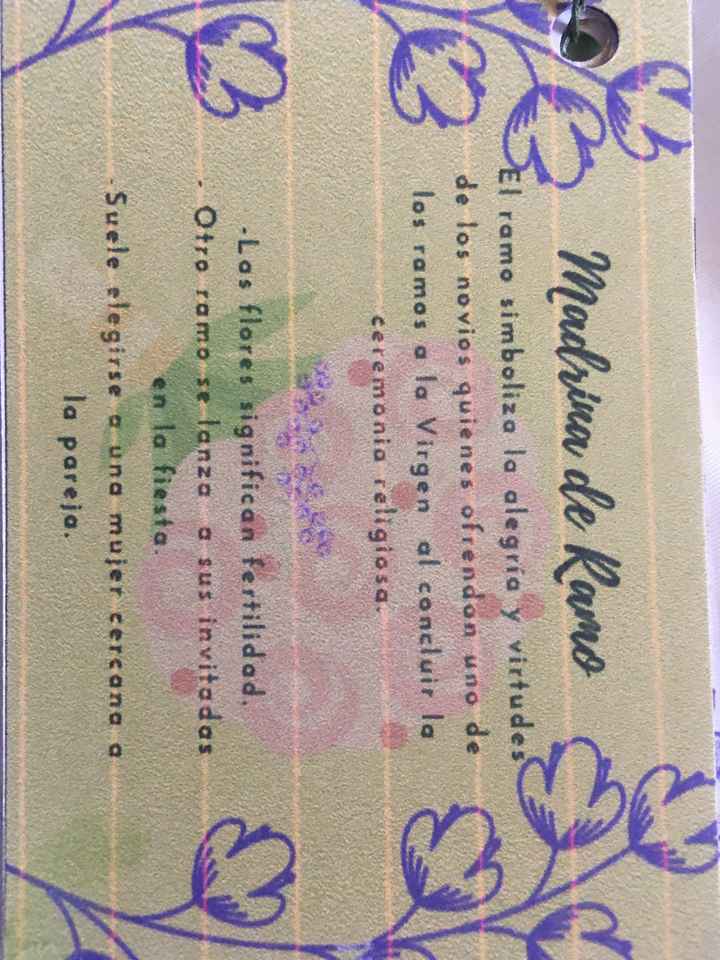 Madrina de Ramo
El ramo simboliza la alegría y virtudes
de los novios quienes ofrendan uno de
los ramos a la Virgen al concluir la
ceremonia religiosa.
-Las flores significan fertilidad.
- Otro ramo se lanza a sus invitadas
en la fiesta.
-Suele elegirse a una mujer cercana a
la pareja.